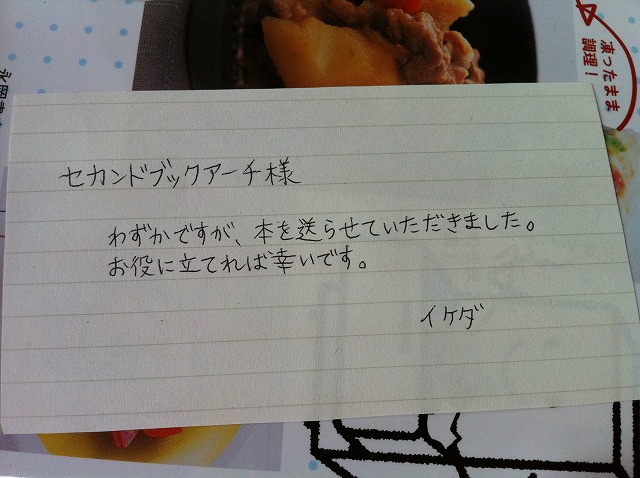 凍ったまま
調理！
セカンドブックアーチ様
わずかですが、本を送らせていただきました。
お役に立てれば幸いです。
イケダ